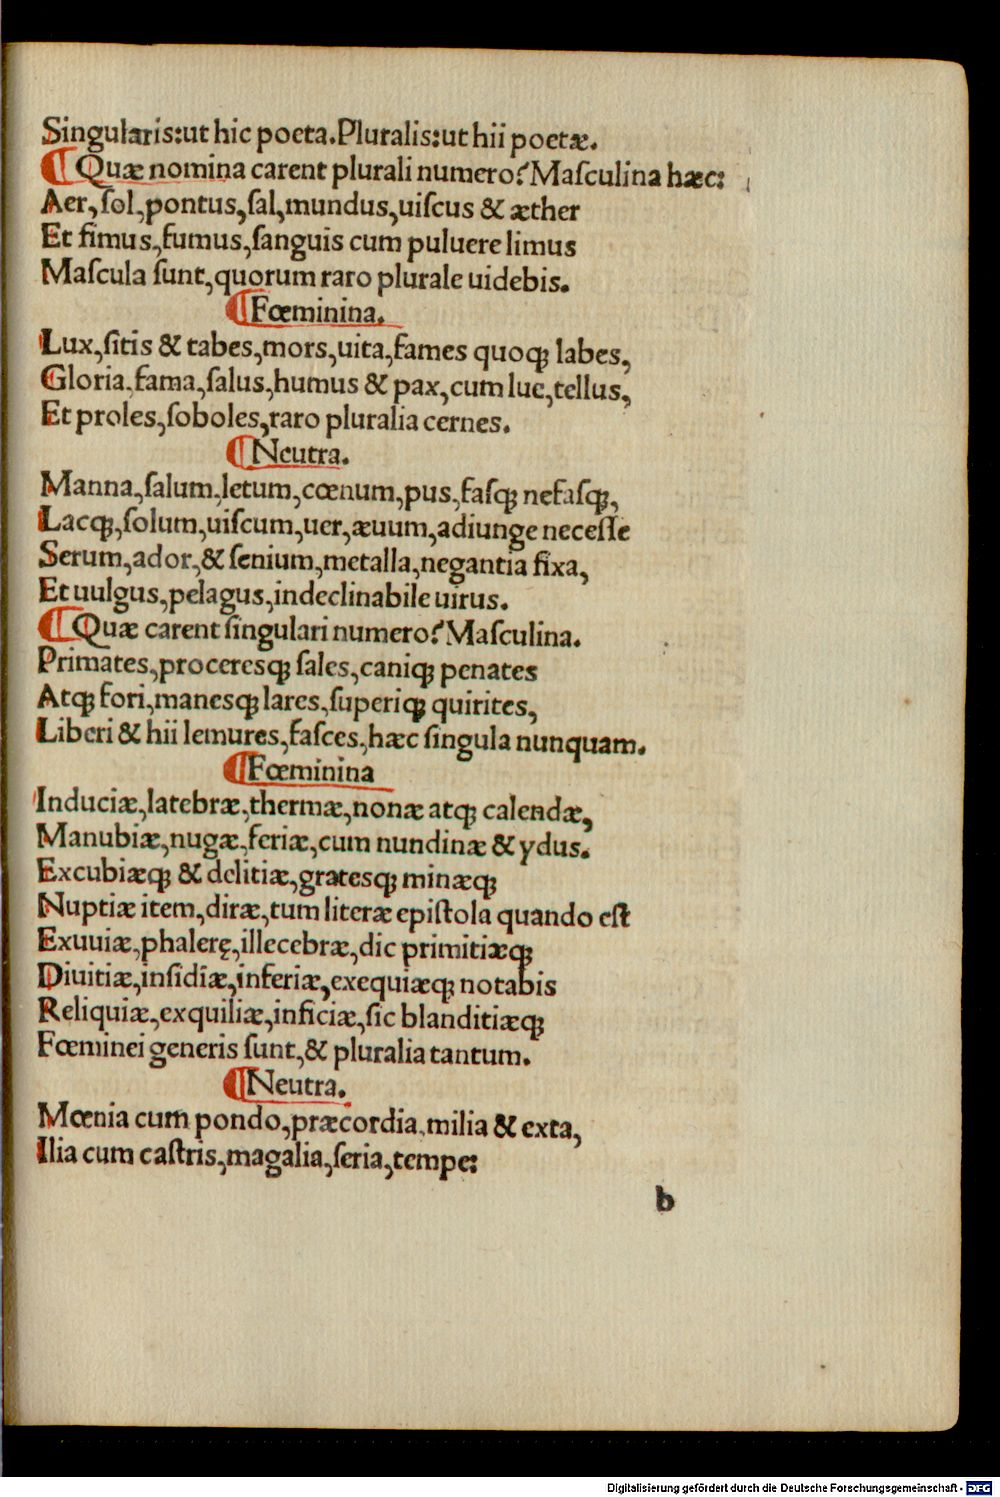 Singularis:ut hic poeta.Pluralis:ut hii poetæ.
¶ Quæ nomina carent plurali numero? Maſculina hæc:
Aer,ſol,pontus,ſal,mundus,uiſcus & æther
Et fimus,fumus,ſanguis cum puluere limus
Maſcula ſunt,quorum raro plurale uidebis.
¶ Fœminina.
Lux,ſitis & tabes,mors,uita,fames quoqꝫ labes,
Gloria,fama,ſalus,humus & pax,cum lue,tellus,
Et proles,ſoboles,raro pluralia cernes.
¶ Neutra.
Manna,ſalum,letum,cœnum,pus,faſqꝫ nefaſqꝫ,
Lacqꝫ,ſolum,uiſcum,uer,æuum,adiunge neceſſe
Serum,ador,& ſenium,metalla,negantia fixa,
Et uulgus,pelagus,indeclinabile uirus.
¶ Quæ carent ſingulari numero? Maſculina.
Primates,proceresqꝫ ſales,caniqꝫ penates
Atqꝫ fori,manesqꝫ lares,ſuperiqꝫ quirites,
Liberi & hii lemures,faſces,hæc ſingula nunquam.
¶ Fœminina
Induciæ,latebræ,thermæ,nonæ atqꝫ calendæ,
Manubiæ,nugæ,feriæ,cum nundinæ & ydus.
Excubiæqꝫ & delitiæ,gratesqꝫ minæqꝫ
Nuptiæ item,diræ,tum literæ epiſtola quando eſt
Exuuiæ,phalerę,illecebræ,dic primitiæqꝫ
Diuitiæ,inſidiæ,inferiæ,exequiæqꝫ notabis
Reliquiæ,exquiliæ,inficiæ,ſic blanditiæqꝫ
Fœminei generis ſunt,& pluralia tantum.
¶ Neutra.
Mœnia cum pondo,præcordia,milia & exta,
Ilia cum caſtris,magalia,ſeria,tempe:
b
Digitalisierung gefördert durch die Deutsche Forschungsgemeinschaft - DFG